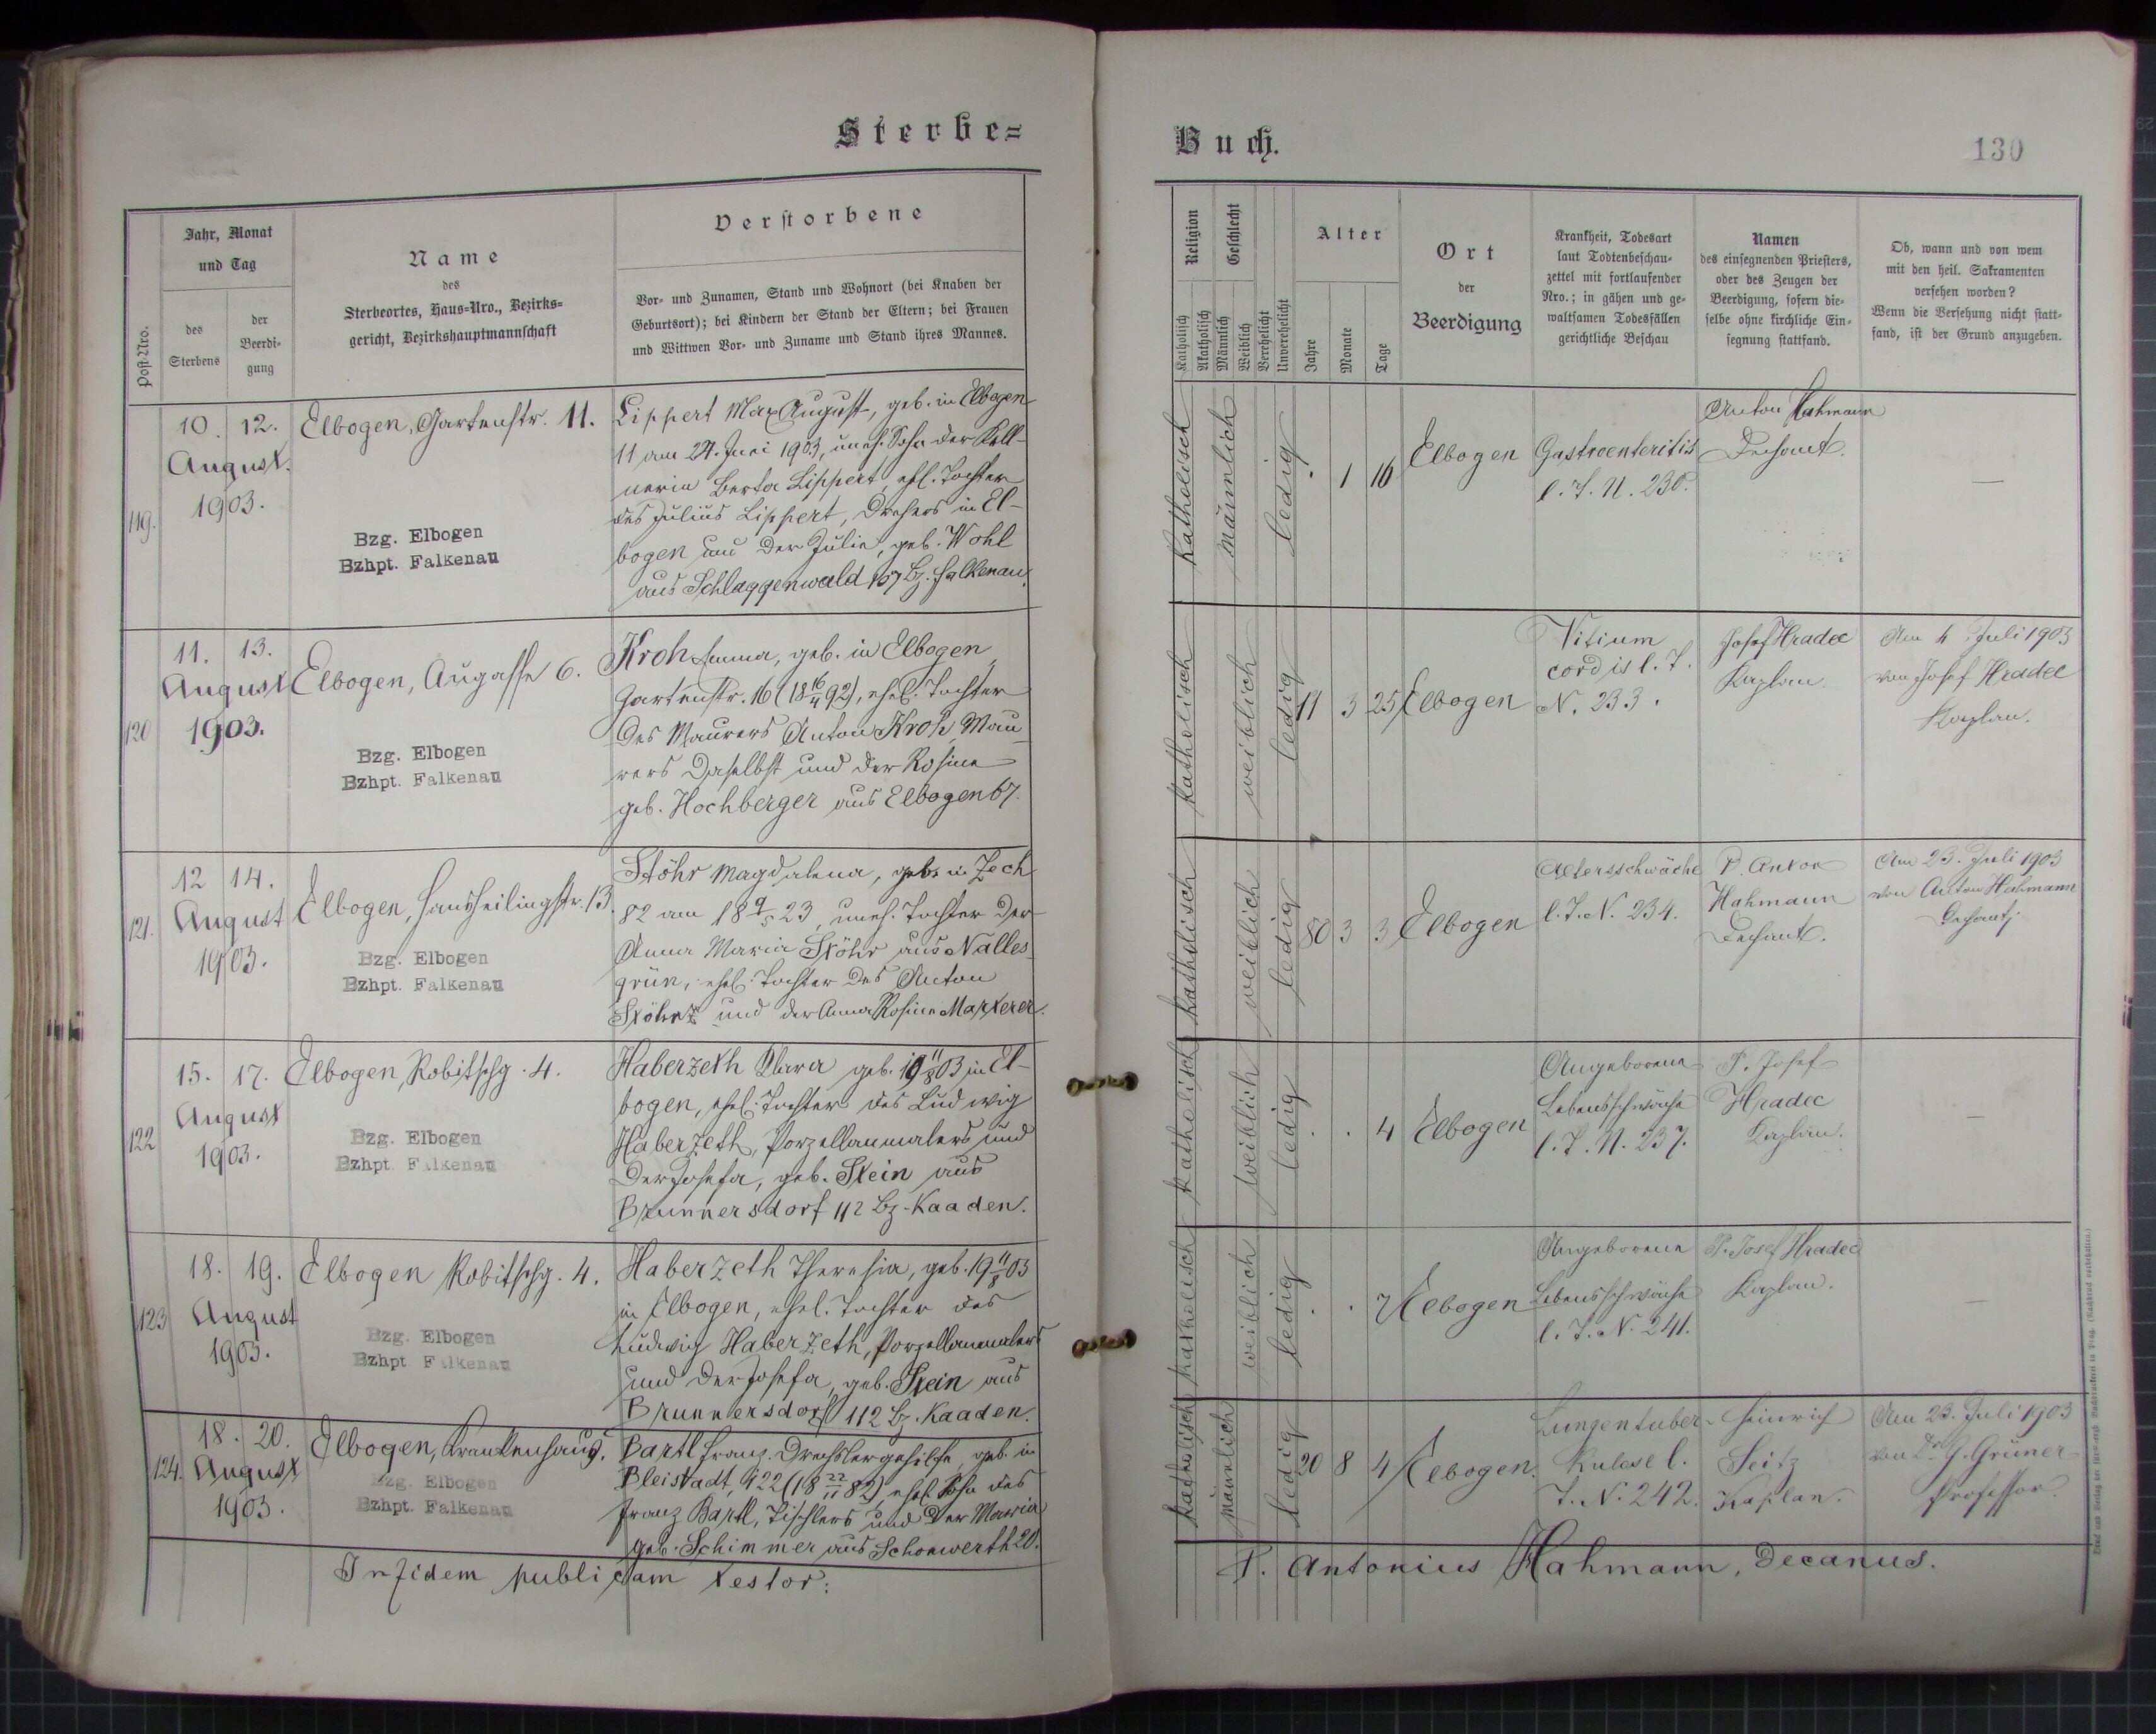 Sterbe=
Buch.
130
Post-Nro.
Jahr, Monat
und Tag
des
Sterbens
der
Beerdi-
gung
Name
des
Sterbeortes, Haus-Nro., Bezirks-
gericht, Bezirkshauptmannschaft
Verstorbene
Vor- und Zunamen, Stand und Wohnort (bei Knaben der
Geburtsort); bei Kindern der Stand der Eltern; bei Frauen
und Wittwen Vor- und Zuname und Stand ihres Mannes.
Religion
Katholisch
Akatholisch
Geschlecht
Männlich
Weiblich
Verehelicht
Unverehelicht
Alter
Jahre
Monate
Tage
Ort
der
Beerdigung
Krankheit, Todesart
laut Todtenbeschau-
zettel mit fortlaufender
Nro.; in gähen und ge-
waltsamen Todesfällen
gerichtliche Beschau
Namen
des einsegnenden Priesters,
oder des Zeugen der
Beerdigung, sofern die-
selbe ohne kirchliche Ein-
segnung stattfand.
Ob, wann und von wem
mit den heil. Sakramenten
versehen worden?
Wenn die Versehung nicht statt-
fand, ist der Grund anzugeben.
119.
10. 12.
August.
1903.
Elbogen, Gartenstr. 11.
Bzg. Elbogen
Bzhpt. Falkenau
Lippert Max August, geb. in Elbogen
11 am 24. Juni 1903, uneh. Sohn der Kell-
nerin Berta Lippert, ehl. Tochter
des Julius Lippert, Drehers in El-
bogen und der Julie, geb. Wohl
aus Schlaggenwald 107 Bz. Falkenau.
katholisch
männlich
ledig
. 1 16
Elbogen
Gastroenteritis
l. T. N. 230.
Anton Hahmann
Dechant.
—
120
11. 13.
August
1903.
Elbogen, Augasse 6.
Bzg. Elbogen
Bzhpt. Falkenau
Kroh Emma, geb. in Elbogen
Gartenstr. 16 (18 16/4 92), ehel. Tochter
des Maurers Anton Kroh, Mau-
rers daselbst und der Rosina
geb. Hochberger aus Elbogen 67.
katholisch
weiblich
ledig
11 3 25
Elbogen
Vitium
cordis l. T.
N. 233.
Josef Hradec
Kaplan.
Am 4. Juli 1903
von Josef Hradec
Kaplan.
121.
12 14.
August
1903.
Elbogen, Hansheilingstr. 13.
Bzg. Elbogen
Bzhpt. Falkenau
Stöhr Magdalena, geb. in Zech
82 am 18 9/5 23, uneh. Tochter der
Anna Maria Stöhr aus Nalles-
grün, ehel. Tochter des Anton
Stöhr und der Anna Rosina Marterer.
katholisch
weiblich
ledig
80 3 3
Elbogen
Altersschwäche
l. T. N. 234.
P. Anton
Hahmann
Dechant.
Am 23. Juli 1903
von Anton Hahmann
Dechant.
122
15. 17.
August
1903.
Elbogen, Robitschg. 4.
Bzg. Elbogen
Bzhpt. Falkenau
Haberzeth Klara geb. 19 11/8 03 in El-
bogen, ehel. Tochter des Ludwig
Haberzeth, Porzellanmalers und
der Josefa, geb. Stein aus
Brunnersdorf 112 Bz. Kaaden.
katholisch
weiblich
ledig
. . 4
Elbogen
Angeborene
Lebensschwäche
l. T. N. 237.
P. Josef
Hradec
Kaplan.
—
123
18. 19.
August
1903.
Elbogen Robitschg. 4.
Bzg. Elbogen
Bzhpt Falkenau
Haberzeth Theresia, geb. 19 11/8 03
in Elbogen, ehel. Tochter des
Ludwig Haberzeth, Porzellanmalers
und der Josefa, geb. Stein aus
Brunnersdorf 112 Bz. Kaaden.
katholisch
weiblich
ledig
. . 7
Elbogen
Angeborene
Lebensschwäche
l. T. N. 241.
P. Josef Hradec
Kaplan.
—
124.
18. 20.
August
1903.
Elbogen, Krankenhaus.
Bzg. Elbogen
Bzhpt. Falkenau
Bartl Franz Drechslergehilfe, geb. in
Bleistadt, 422 (18 22/11 82), ehel. Sohn des
Franz Bartl, Tischlers und der Maria
geb. Schimmer aus Schönwerth 20.
katholisch
männlich
ledig
20 8 4
Elbogen.
Lungentuber-
kulose l.
T. N. 242.
Heinrich
Seitz
Kaplan.
Am 23. Juli 1903
von Dr. J. Grüner
Professor.
In fidem publicam testor:
P. Antonius Hahmann, Decanus.